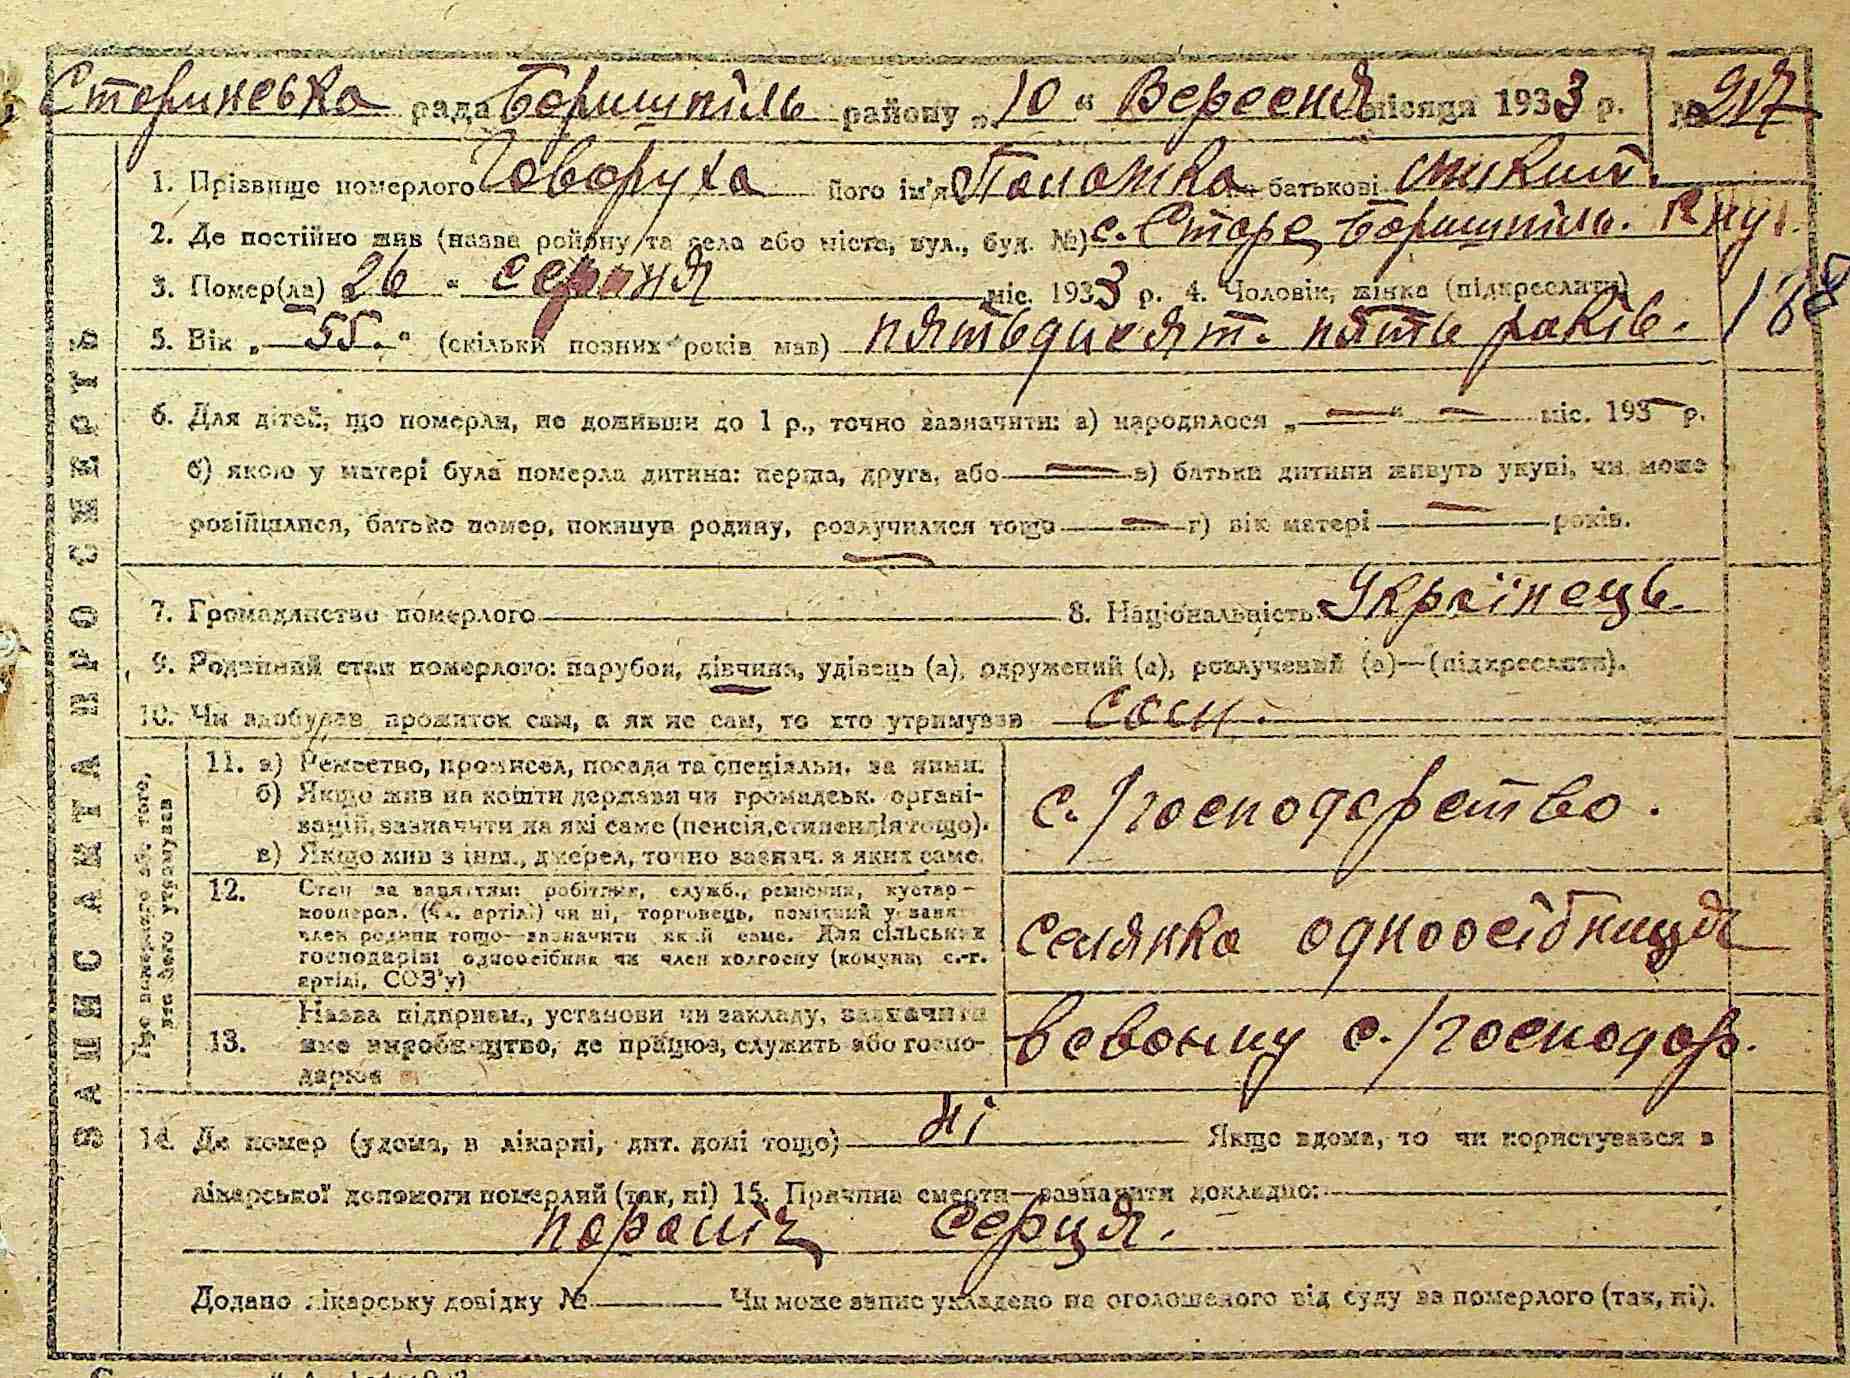 Старинська рада Бориспіль району „ 10 “ Вересня місяця 1933 р. № 217
1. Прізвище померлого Говоруха його ім'я Палажка батькові Микит.
2. Де постійно жив (назва району та села або міста, вул., буд. №) с. Старе, Бориспіль.
3. Помер(ла) „ 26 “ серпня міс. 1933 р. 4. Чоловік, жінка (підкреслити)
5. Вік „ 55. “ (скільки повних років мав) пятьдисят. пять років.
6. Для дітей, що померли, не доживши до 1 р., точно зазначити: а) народилося „ — “ — міс. 193 — р.
б) якою у матері була померла дитина: перша, друга, або — в) батьки дитини живуть укупі, чи може
розійшлися, батько помер, покинув родину, розлучилися тощо — г) вік матері — років.
7. Громадянство померлого 8. Національність Українець.
9. Родинний стан померлого: парубок, дівчина, удівець (а), одружений (а), розлучений (а)—(підкреслити).
10. Чи здобував прожиток сам, а як не сам, то хто утримував сосн.
ЗАПИС АКТА ПРО СМЕРТЬ
Про померлого або того, хто його утримував
11. а) Ремество, промисел, посада та спеціяльн. за ними.
б) Якщо жив на кошти держави чи громадськ. органі-
зацій, зазначити на які саме (пенсія, стипендія тощо).
в) Якщо жив з інш., джерел, точно зазнач. з яких саме.
с./господарство.
12. Стан за заняттям: робітник, служб., ремісник, кустар-
кооперов. (чл. артілі) чи ні, торговець, помічний у занят.
член родини тощо—зазначити який саме. Для сільських
господарів: одноосібник чи член колгоспу (комуни, с.-г.
артілі, СОЗ'у)
селянка одноосібниця
13. Назва підприєм., установи чи закладу, зазначити
яке виробництво, де працює, служить або госпо-
дарює
всвоєму с./господар.
14. Де помер (удома, в лікарні, дит. домі тощо) ні Якщо вдома, то чи користувався з
лікарської допомоги померлий (так, ні) 15. Причина смерти—зазначити докладно:
параліч серця.
Додано лікарську довідку № Чи може запис укладено на оголошеного від суду за померлого (так, ні).